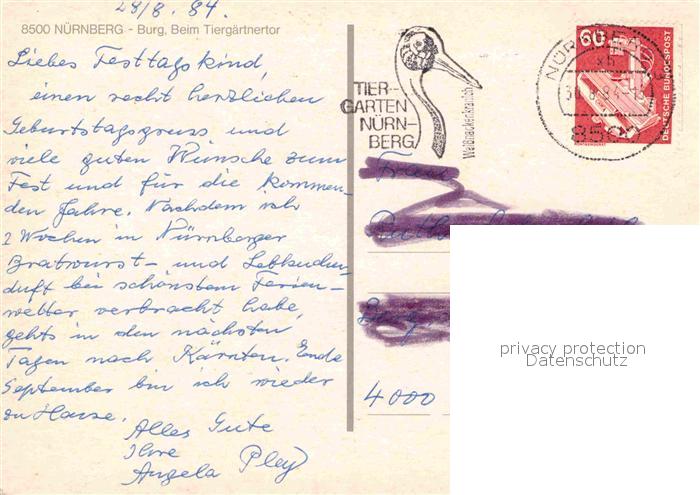 28/8. 84.
8500 NÜRNBERG - Burg, Beim Tiergärtnertor
Liebes Festtagskind,
einen recht herzlichen
Geburtstagsgruss und
viele guten Wünsche zum
Fest und für die kommen-
den Jahre. Nachdem ich
2 Wochen in Nürnberger
Bratwurst- und Lebkuchen
duft bei schönstem Ferien-
wetter verbracht habe,
gehts in den nächsten
Tagen nach Kärnten. Ende
September bin ich wieder
zu Hause.
Alles Gute
Ihre
Angela Pley
TIER-
GARTEN
NÜRN-
BERG
Weißnackenkranich
60
DEUTSCHE BUNDESPOST
Frau
4000
privacy protection
Datenschutz